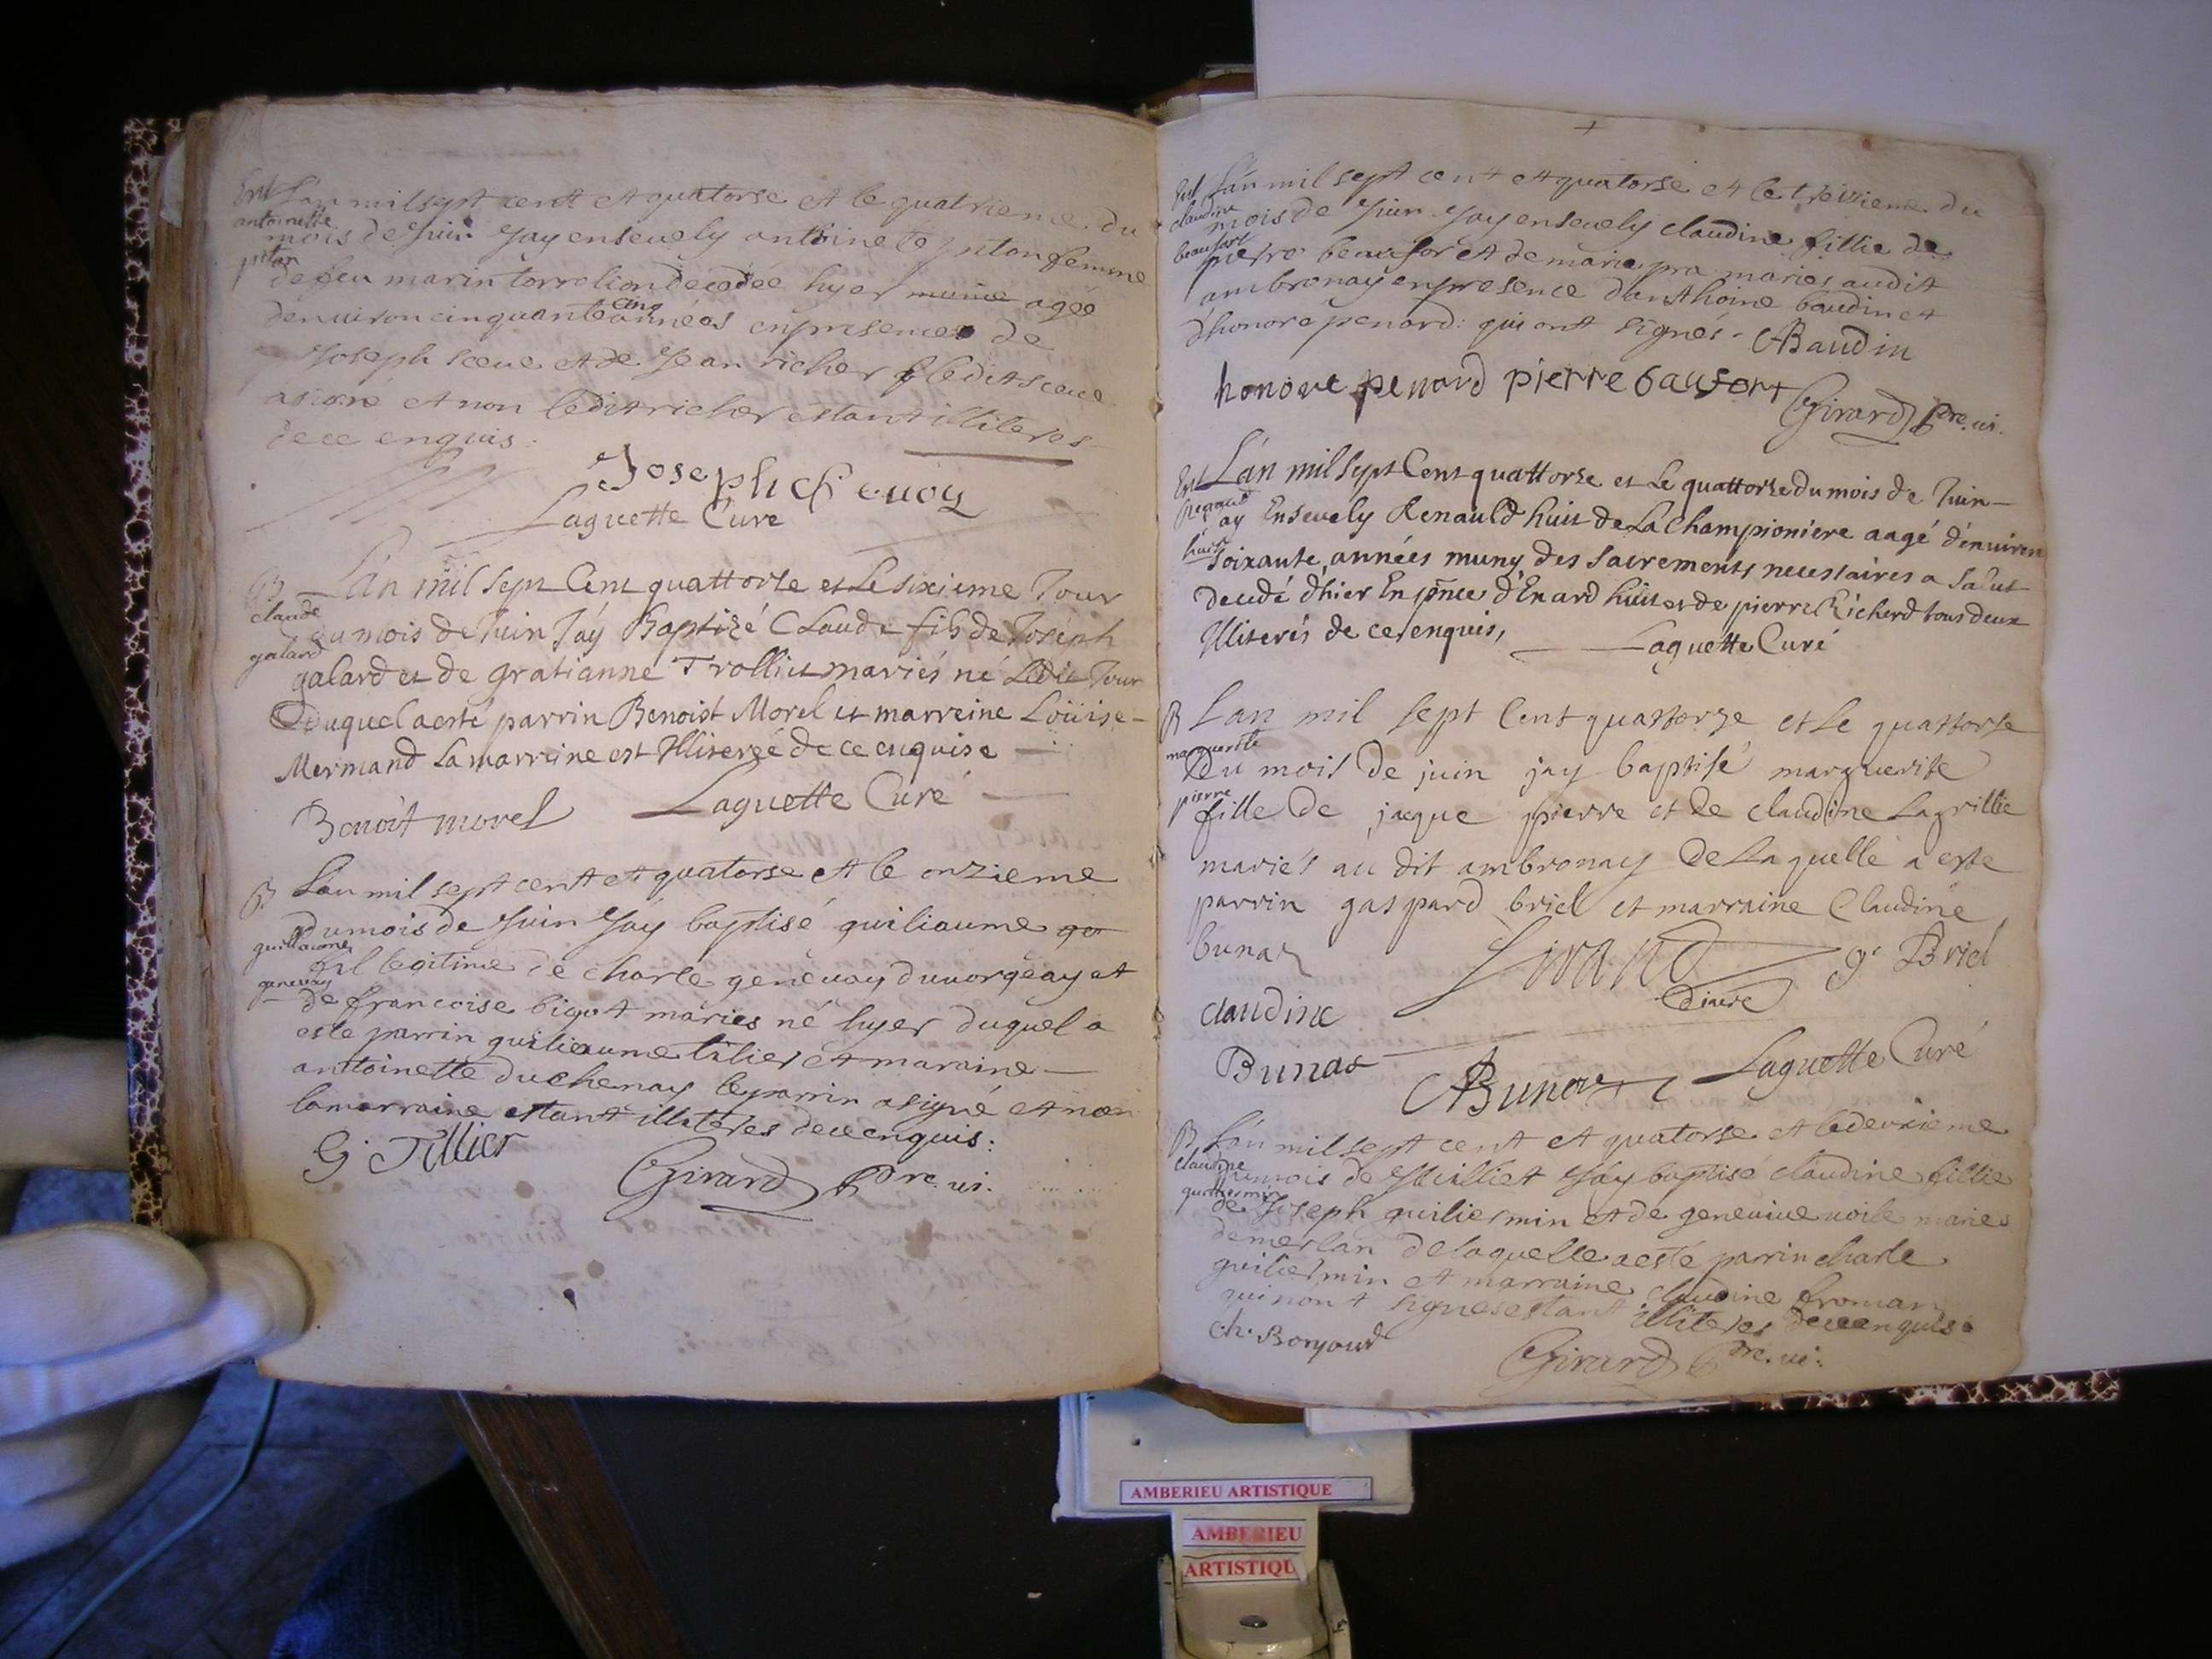 Ent L'an mil sept cent et quatorse et le quatrieme du
antoinette
mois de Juin Jay ensevely anthoinete pitan femme
pitan
de feu marin torrelion decedée hyer munie agée
cinq
denuiron cinquante années en presence de
Joseph sceue et de Jean richer leditsceue
asigné et non leditricher estant illiteres
de ce enquis
Joseph
Laguette Curé
B L'an mil sept Cent quattorze et Le sixieme Jour
claude
du mois de Juin J'ay Baptizé Claude fils de Joseph
galard
galard et de gratianne Trolliet mariés né Ledit Jour
Duquel a esté parrin Benoist Morel et marreine Loüise
Mermand La marreine est Illiterée de ce enquise
Benoit morel Laguette Curé
B L'an mil sept cent et quatorse et le onzieme
du mois de Juin J'ay baptisé guiliaume ge
guillaume
fil legitime de charle geneuay duuorgeay et
geneuay
de francoise bigot maries né hyer duquel a
este parrin guiliaume tilier et maraine
anthoinette duchenay leparrin asigné et non
lamarraine estant illiteres deceenquis:
G Tillier
Girard Pre. ui.
Ent L'an mil sept cent et quatorse et le treizieme du
claudine
mois de Juin Jay ensevely claudine fillie de
beaufort
pierre beaufor et de marie pra maries audit
ambronay enpresence d'anthoine baudin et
d'honore penard: qui ont signés. ABaudin
honore penard pierre baufort
Girard Pre. ui.
Ent L'an mil Sept Cent quattorze et Le quattorze du mois de Juin
Renaud
ay Ensevely Renauld huit de La Championiere aagé d'enuiron
huit
Soixante années muny des Sacrements necessaires a Salut
Decedé d'hier En pnce d'Enard huit et de pierre Richerd tous deux
Illiterés de ce enquis, Laguette Curé
B Lan mil sept Cent quattorze et Le quattorse
marguerite
Du mois de juin jay baptisé marguerite
pierre
fille de jacque pierre et de claudine Lagrillie
mariés au dit ambronay De Laquelle a este
parrin gaspard briel et marraine Claudine
bunaz
g. Briel
Diacre
claudine
Bunas
ABunaz Laguette Curé
B L'an mil sept cent et quatorse et ledeuxieme
claudine
dumois de Juilliet J'ay baptisé claudine fillie
guillermin
de Joseph guiliermin et de geneuiue uoile maries
demerlan delaquelle aesté parrin charle
guiliermin et marraine claudine froman
qui nont signes estant illiteres deceenquis.
ch. Bonjour
Girard Pre. ui.
AMBERIEU ARTISTIQUE
AMBERIEU
ARTISTIQU